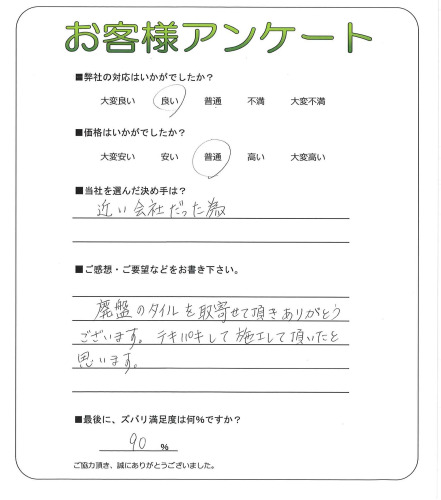 お客様アンケート
■弊社の対応はいかがでしたか？
大変良い 良い 普通 不満 大変不満
■価格はいかがでしたか？
大変安い 安い 普通 高い 大変高い
■当社を選んだ決め手は？
近い会社だった為
■ご感想・ご要望などをお書き下さい。
廃盤のタイルを取寄せて頂きありがとう
ございます。テキパキして施工して頂いたと
思います。
■最後に、ズバリ満足度は何％ですか？
90 ％
ご協力頂き、誠にありがとうございました。